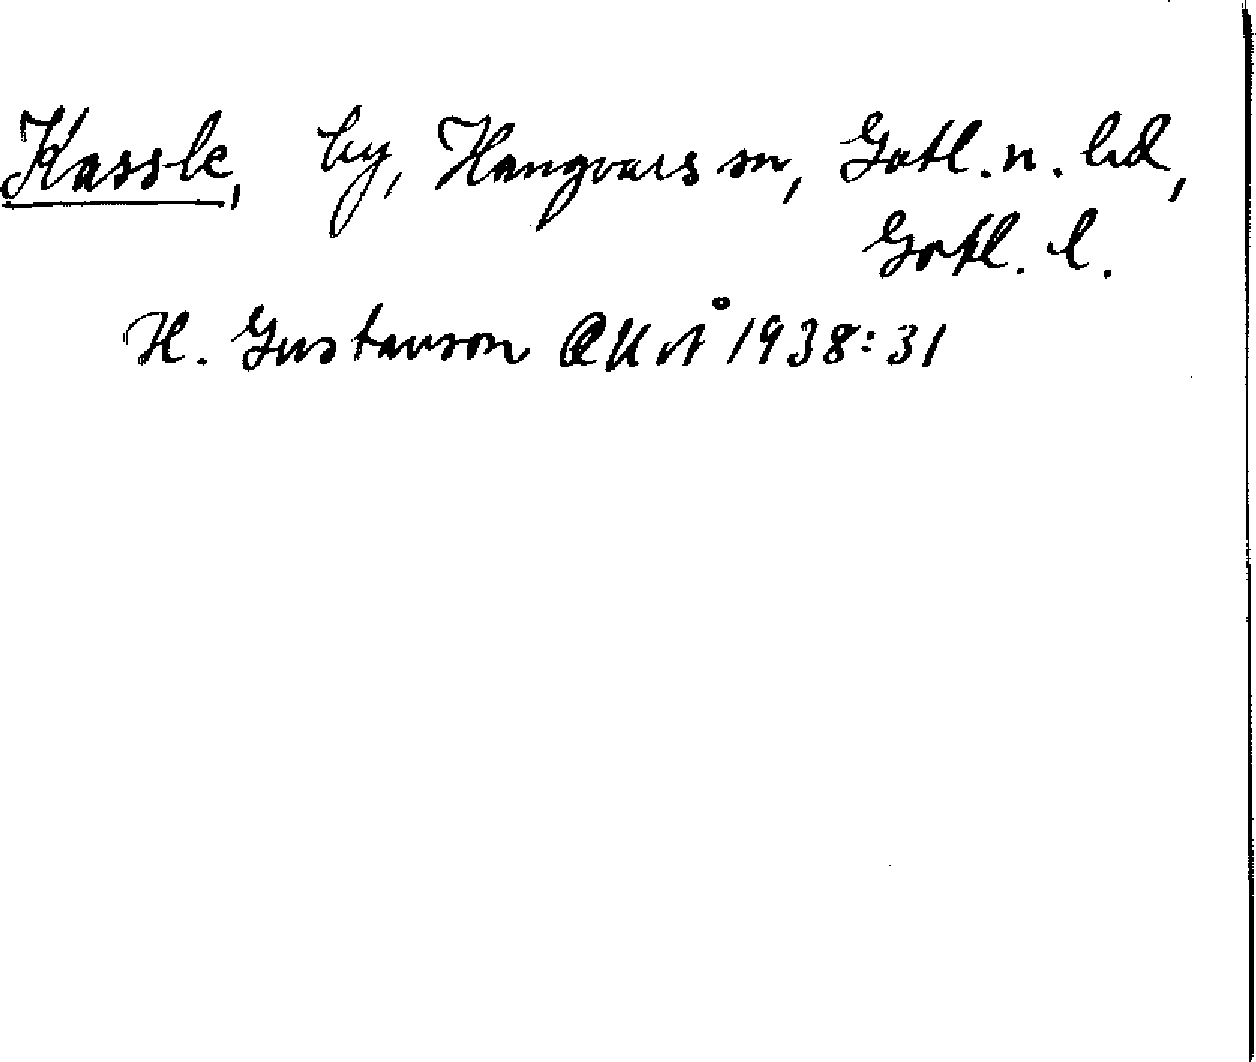 Kassle, by, Hangvars sn, Gotl. n. hd,
Gotl. l.
H. Gustavson GKÅ 1938:31